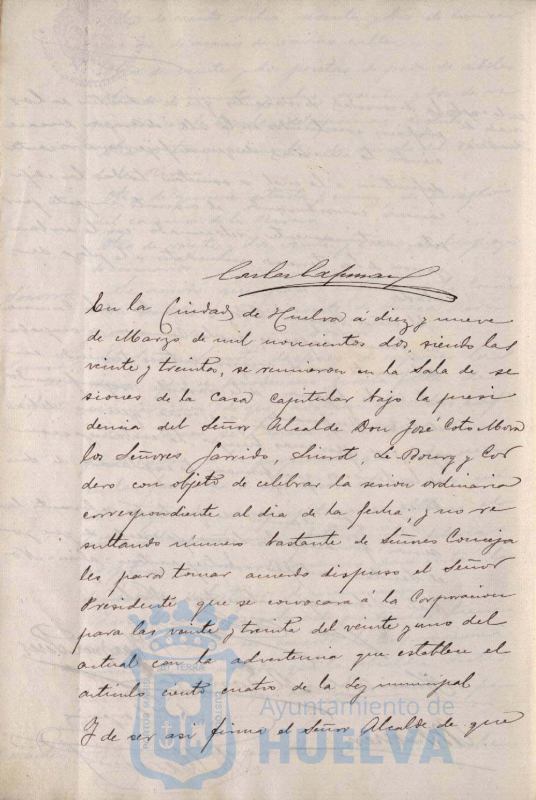 En la Ciudad de Huelva á diez y nueve
de Marzo de mil novecientos dos, siendo las
veinte y treinta, se reunieron en la Sala de se
siones de la casa capitular bajo la presi
dencia del Señor Alcalde Don José Coto Mora
los Señores Garrido, Le Bourg y Cor
dero con objeto de celebrar la sesion ordinaria
correspondiente al dia de la fecha, y no re
sultando número bastante de Señores Conceja
les para tomar acuerdo dispuso el Señor
Presidente que se convocara á la Corporacion
para las veinte y treinta del veinte y uno del
actual con la advertencia que establece el
articulo ciento cuatro de la Ley municipal
Y de ser asi firma el Señor Alcalde de que
Ayuntamiento de
HUELVA